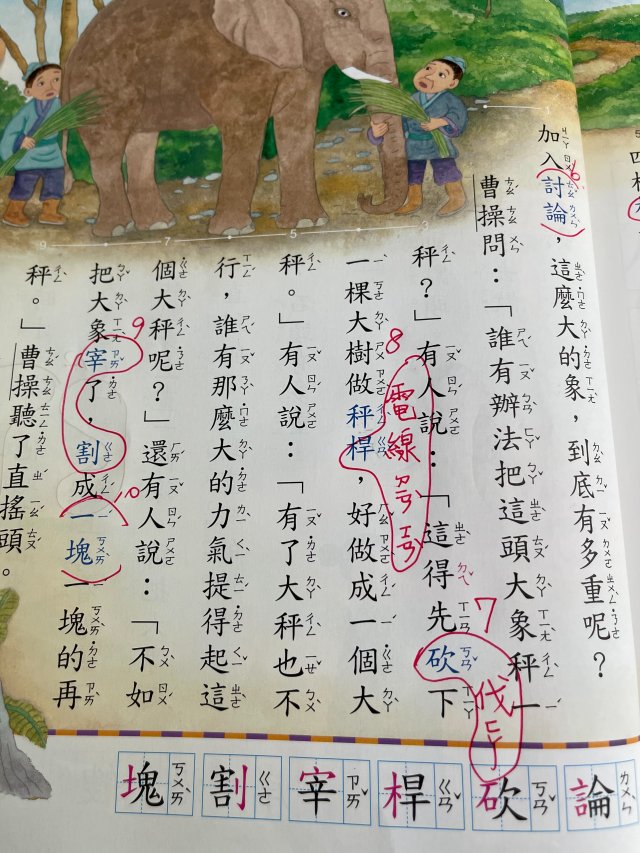 加入討論，這麼大的象，到底有多重呢？
曹操問：「誰有辦法把這頭大象秤一
秤？」有人說：「這得先砍下
一棵大樹做秤桿，好做成一個大
秤。」有人說：「有了大秤也不
行，誰有那麼大的力氣提得起這
個大秤呢？」還有人說：「不如
把大象宰了，割成一塊一塊的再
秤。」曹操聽了直搖頭。
6
7
伐ㄈㄚ
8
電線ㄍㄢ
9
10
1
3
5
7
9
論ㄌㄨㄣˋ
砍ㄎㄢˇ
桿ㄍㄢˇ
宰ㄗㄞˇ
割ㄍㄜ
塊ㄎㄨㄞˋ